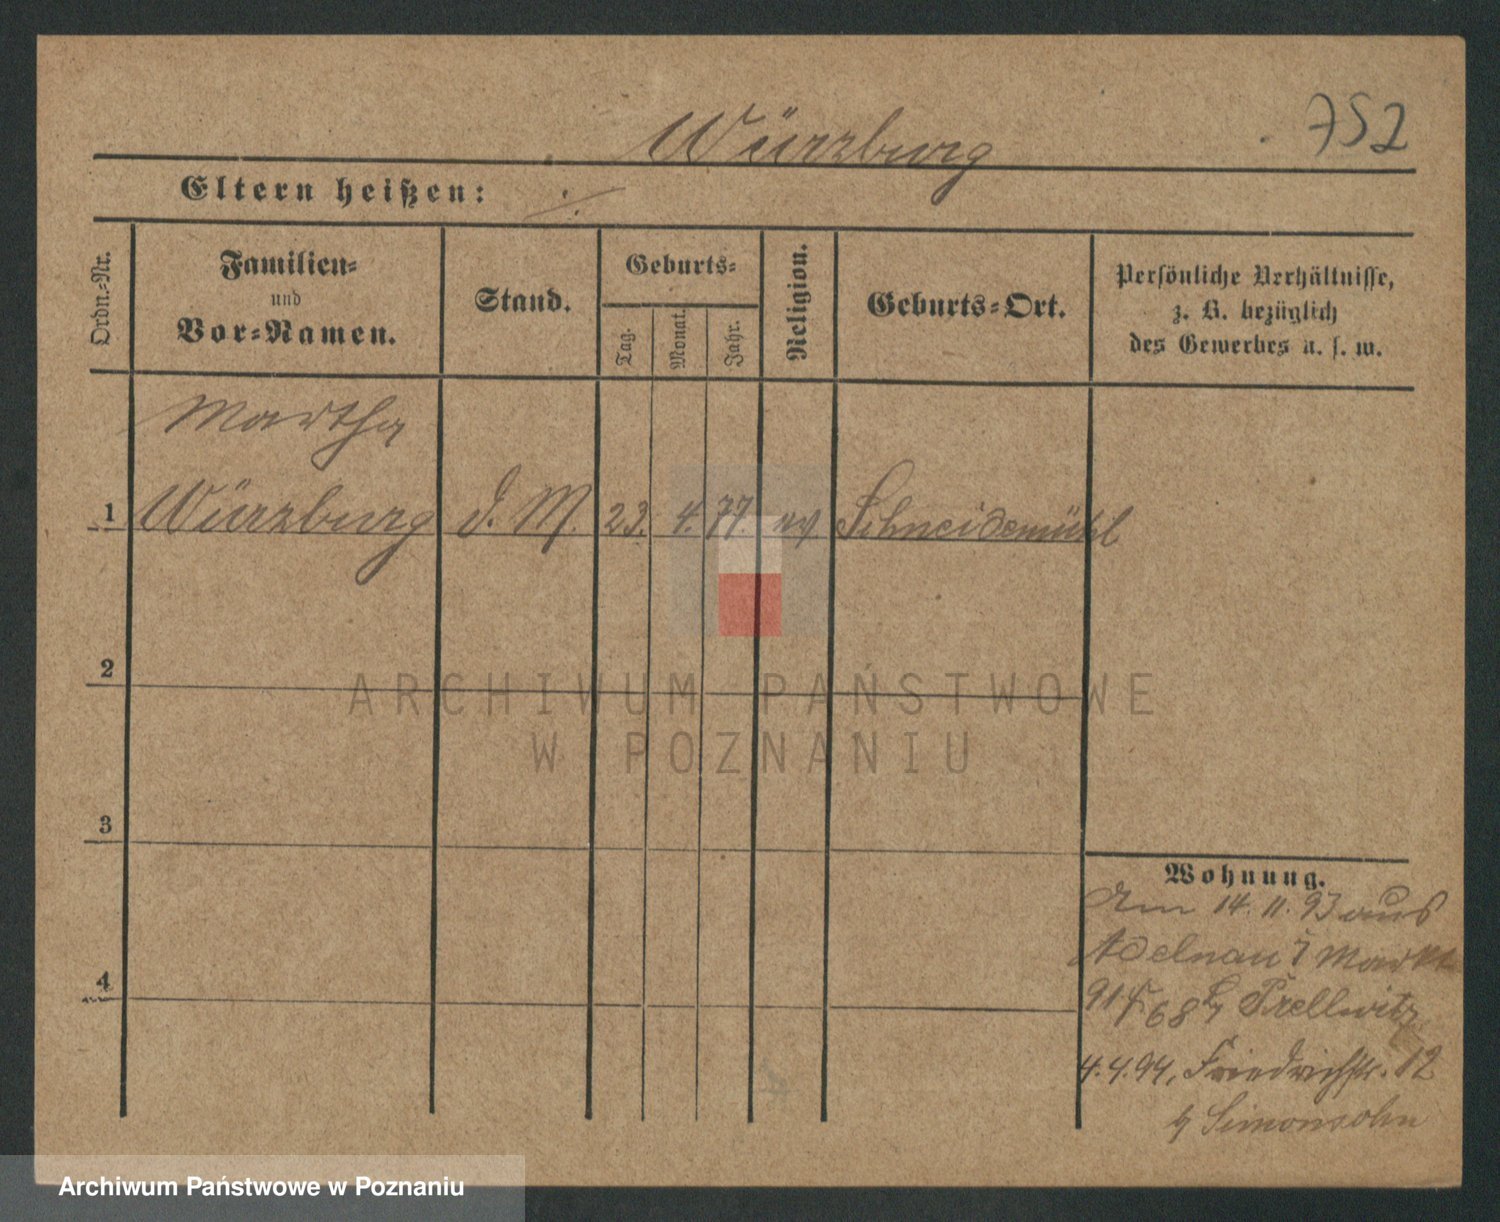 Würzburg
752
Eltern heißen:
Ordn.-Nr.
Familien-
und
Vor-Namen.
Stand.
Geburts-
Tag.
Monat.
Jahr.
Religion.
Geburts-Ort.
Persönliche Verhältnisse,
z. B. bezüglich
des Gewerbes u. s. w.
Martha
1 Würzburg d. M. 23. 4. 77. ev Schneidemühl
2
3
4
Wohnung.
Am 14. 11. 93 aus
Adelnau Markt
91 68 Prellwitz
4. 4. 94, Friedrichstr. 12
b Simonsohn
ARCHIWUM PAŃSTWOWE
W POZNANIU
Archiwum Państwowe w Poznaniu